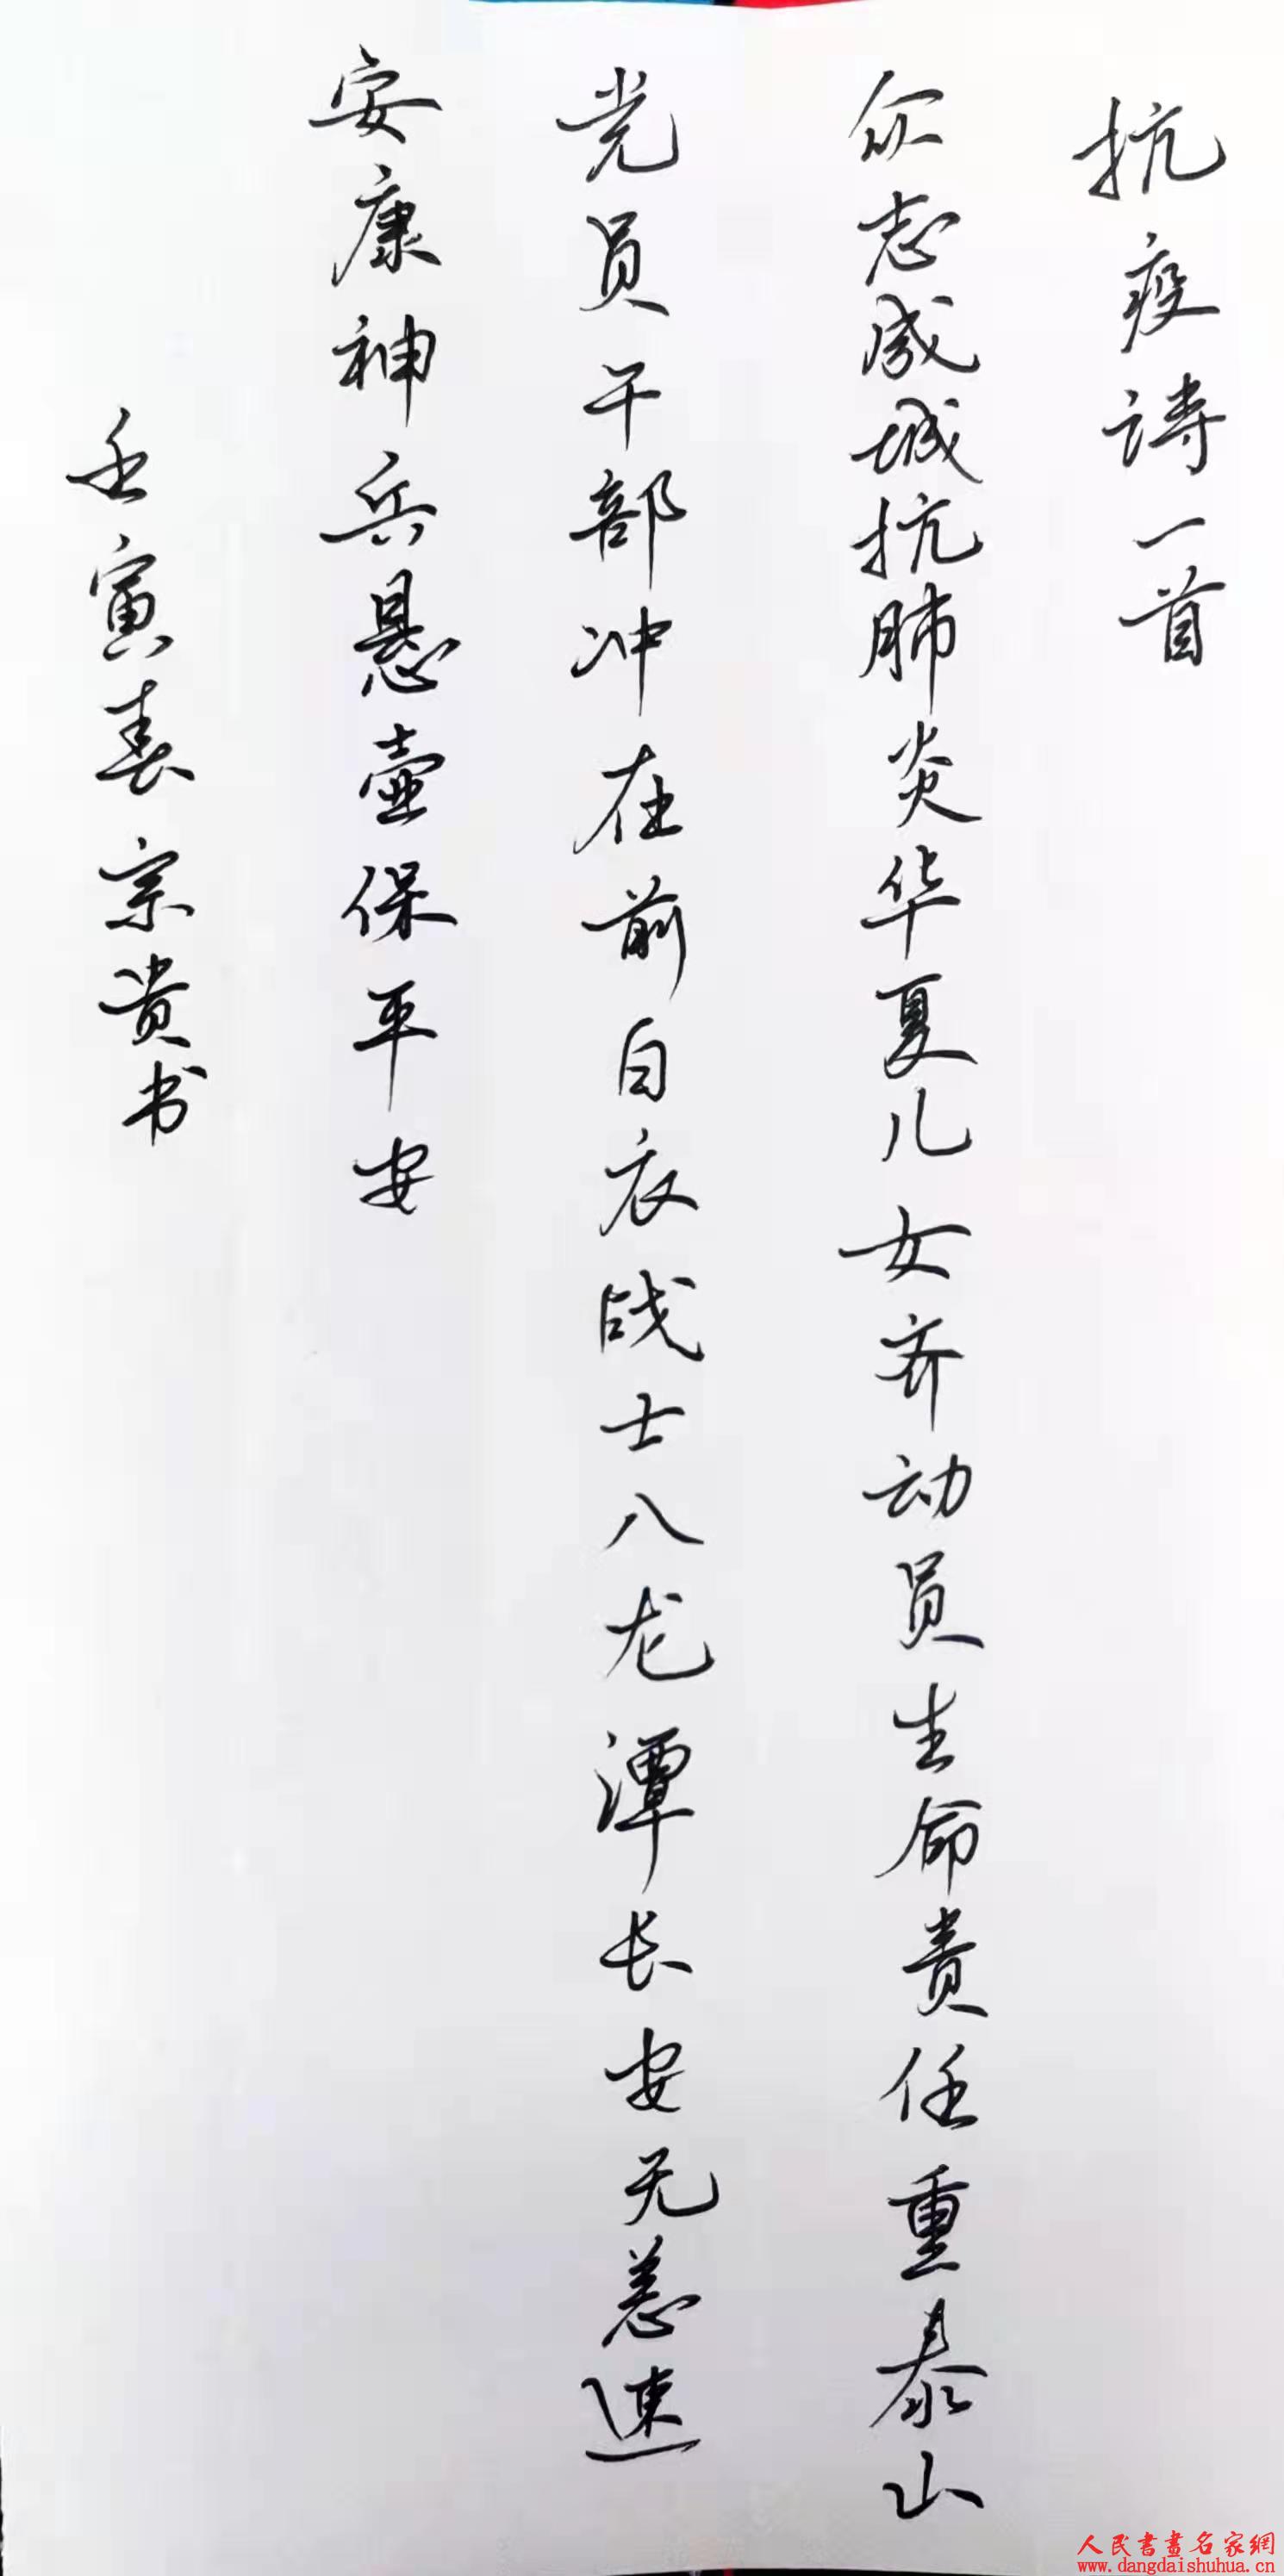 抗疫诗一首
众志成城抗肺炎华夏儿女齐动员生命责任重泰山
党员干部冲在前白衣战士八龙潭长安无恙速
安康神兵悬壶保平安
壬寅春宗贵书
人民書畫名家網
www.dangdaishuhua.cn